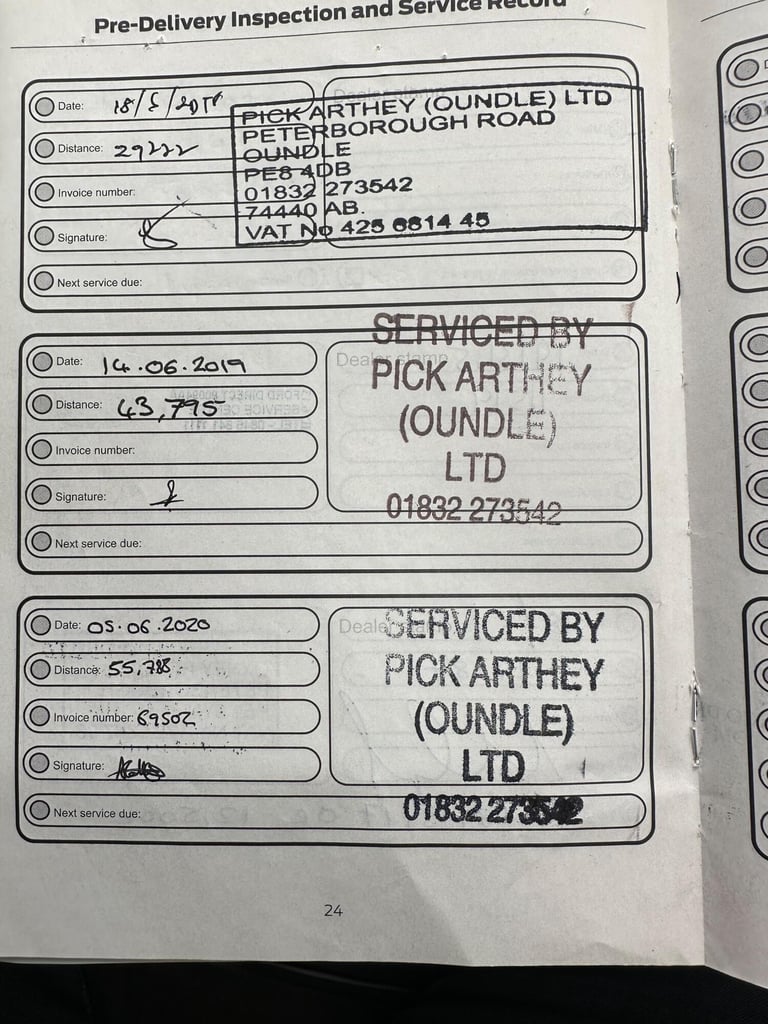 Pre-Delivery Inspection and Service Record
Date: 18/5/2018
Dealer stamp
PICK ARTHEY (OUNDLE) LTD
PETERBOROUGH ROAD
OUNDLE
PE8 4DB
01832 273542
74440 AB.
VAT No 425 6814 45
Distance: 29222
Invoice number:
Signature:
Next service due:
Date: 14.06.2019
Dealer stamp
SERVICED BY
PICK ARTHEY
(OUNDLE)
LTD
01832 273542
Distance: 43,795
Invoice number:
Signature:
Next service due:
Date: 05.06.2020
Dealer
SERVICED BY
PICK ARTHEY
(OUNDLE)
LTD
01832 273542
Distance: 55,788
Invoice number: 69502
Signature:
Next service due:
24